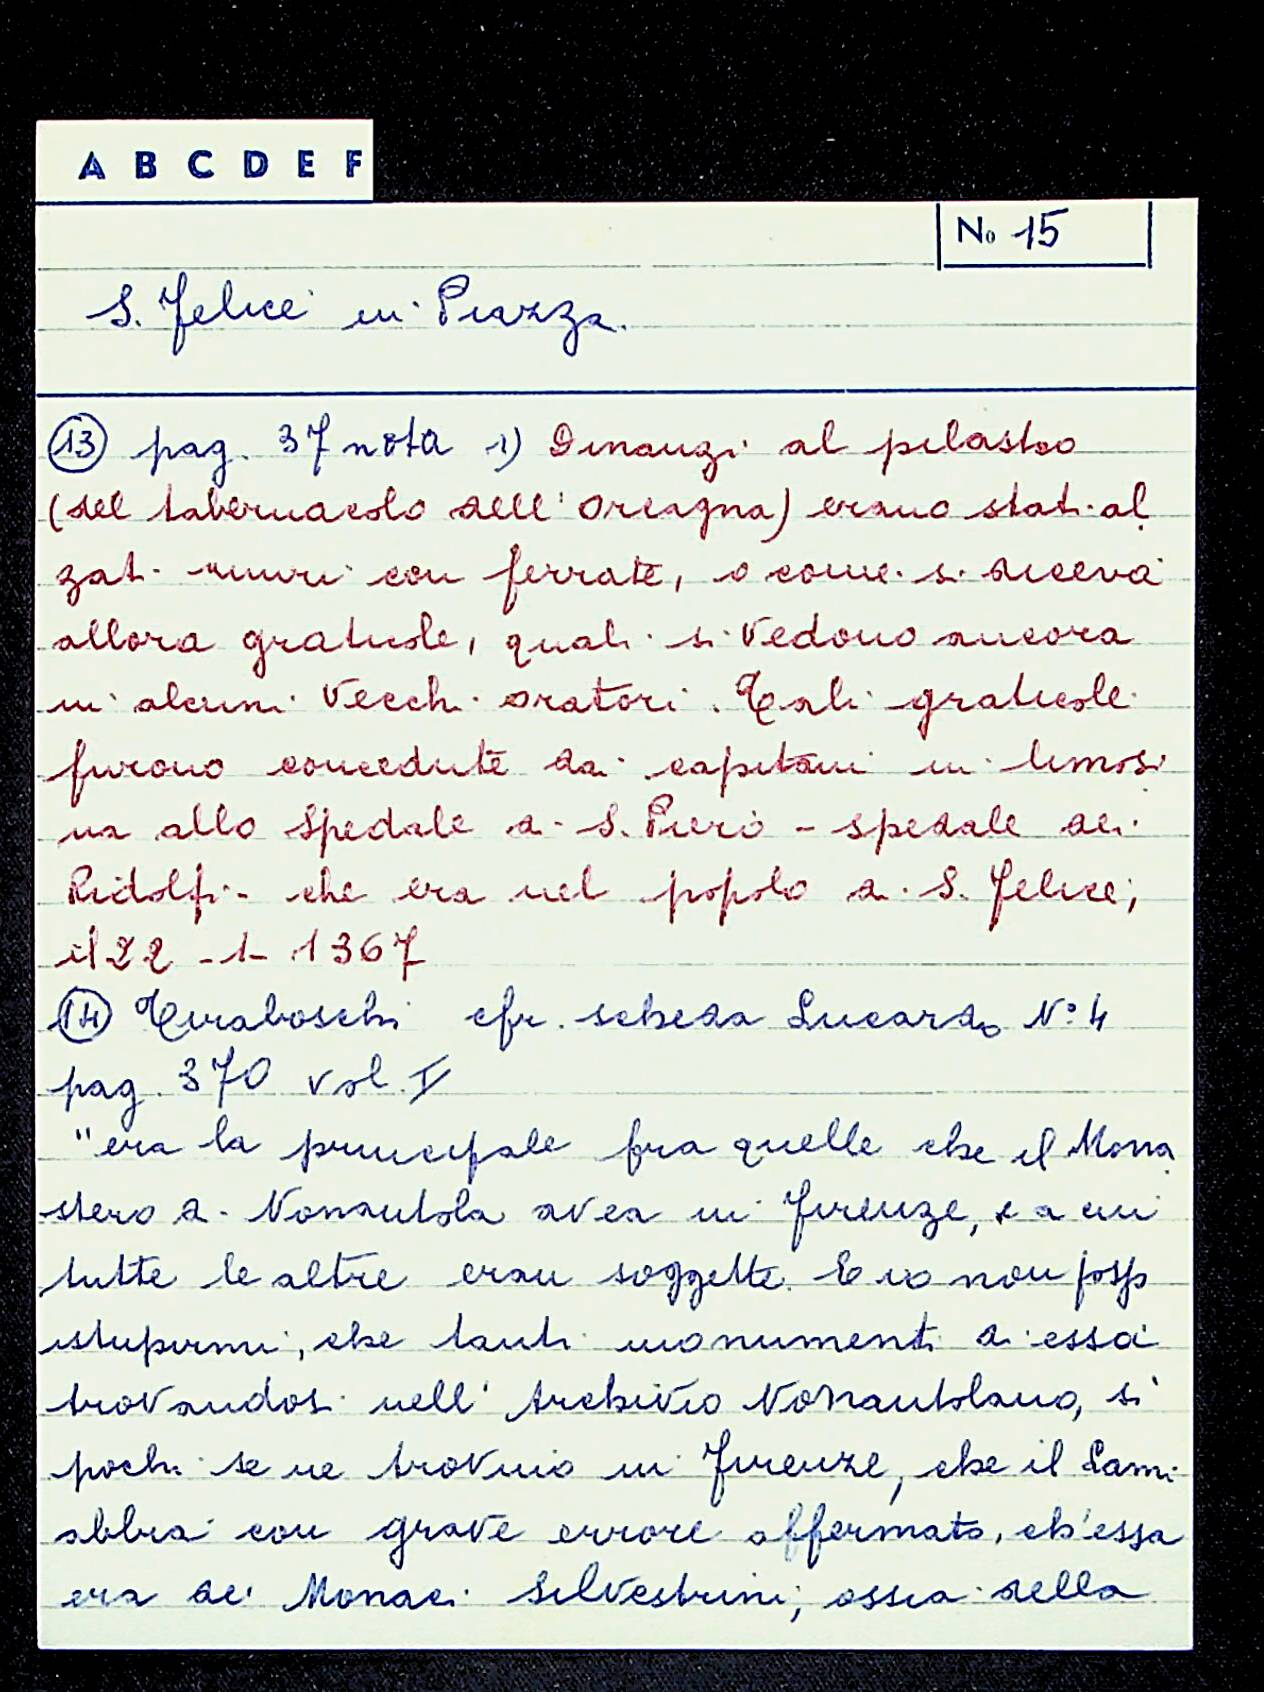 A B C D E F
No 15
S. Felice in Piazza.
13 pag. 37 nota 1) Dinanzi al pilastro
(del tabernacolo dell'Orcagna) erano stati al
zati muri con ferrate, o come si diceva
allora graticole, quali si vedono ancora
in alcuni vecchi oratori. Tali graticole
furono concedute dai capitani in limosi
na allo Spedale di S. Piero - spedale dei
Ridolfi - che era nel popolo di S. Felice,
il 22 - 1 - 1367
14 Tiraboschi cfr. scheda Lucardo N° 4
pag. 370 vol. I
"era la principale fra quelle che il Mona
stero di Nonantola avea in Firenze, e a cui
tutte le altre eran soggette. E io non posso
istupirmi, che tanti monumenti di essa
trovandosi nell'Archivio Nonantolano, sì
pochi se ne trovino in Firenze, che il Lami
abbia con grave errore affermato, ch'essa
era de' Monaci Silvestrini, ossia della